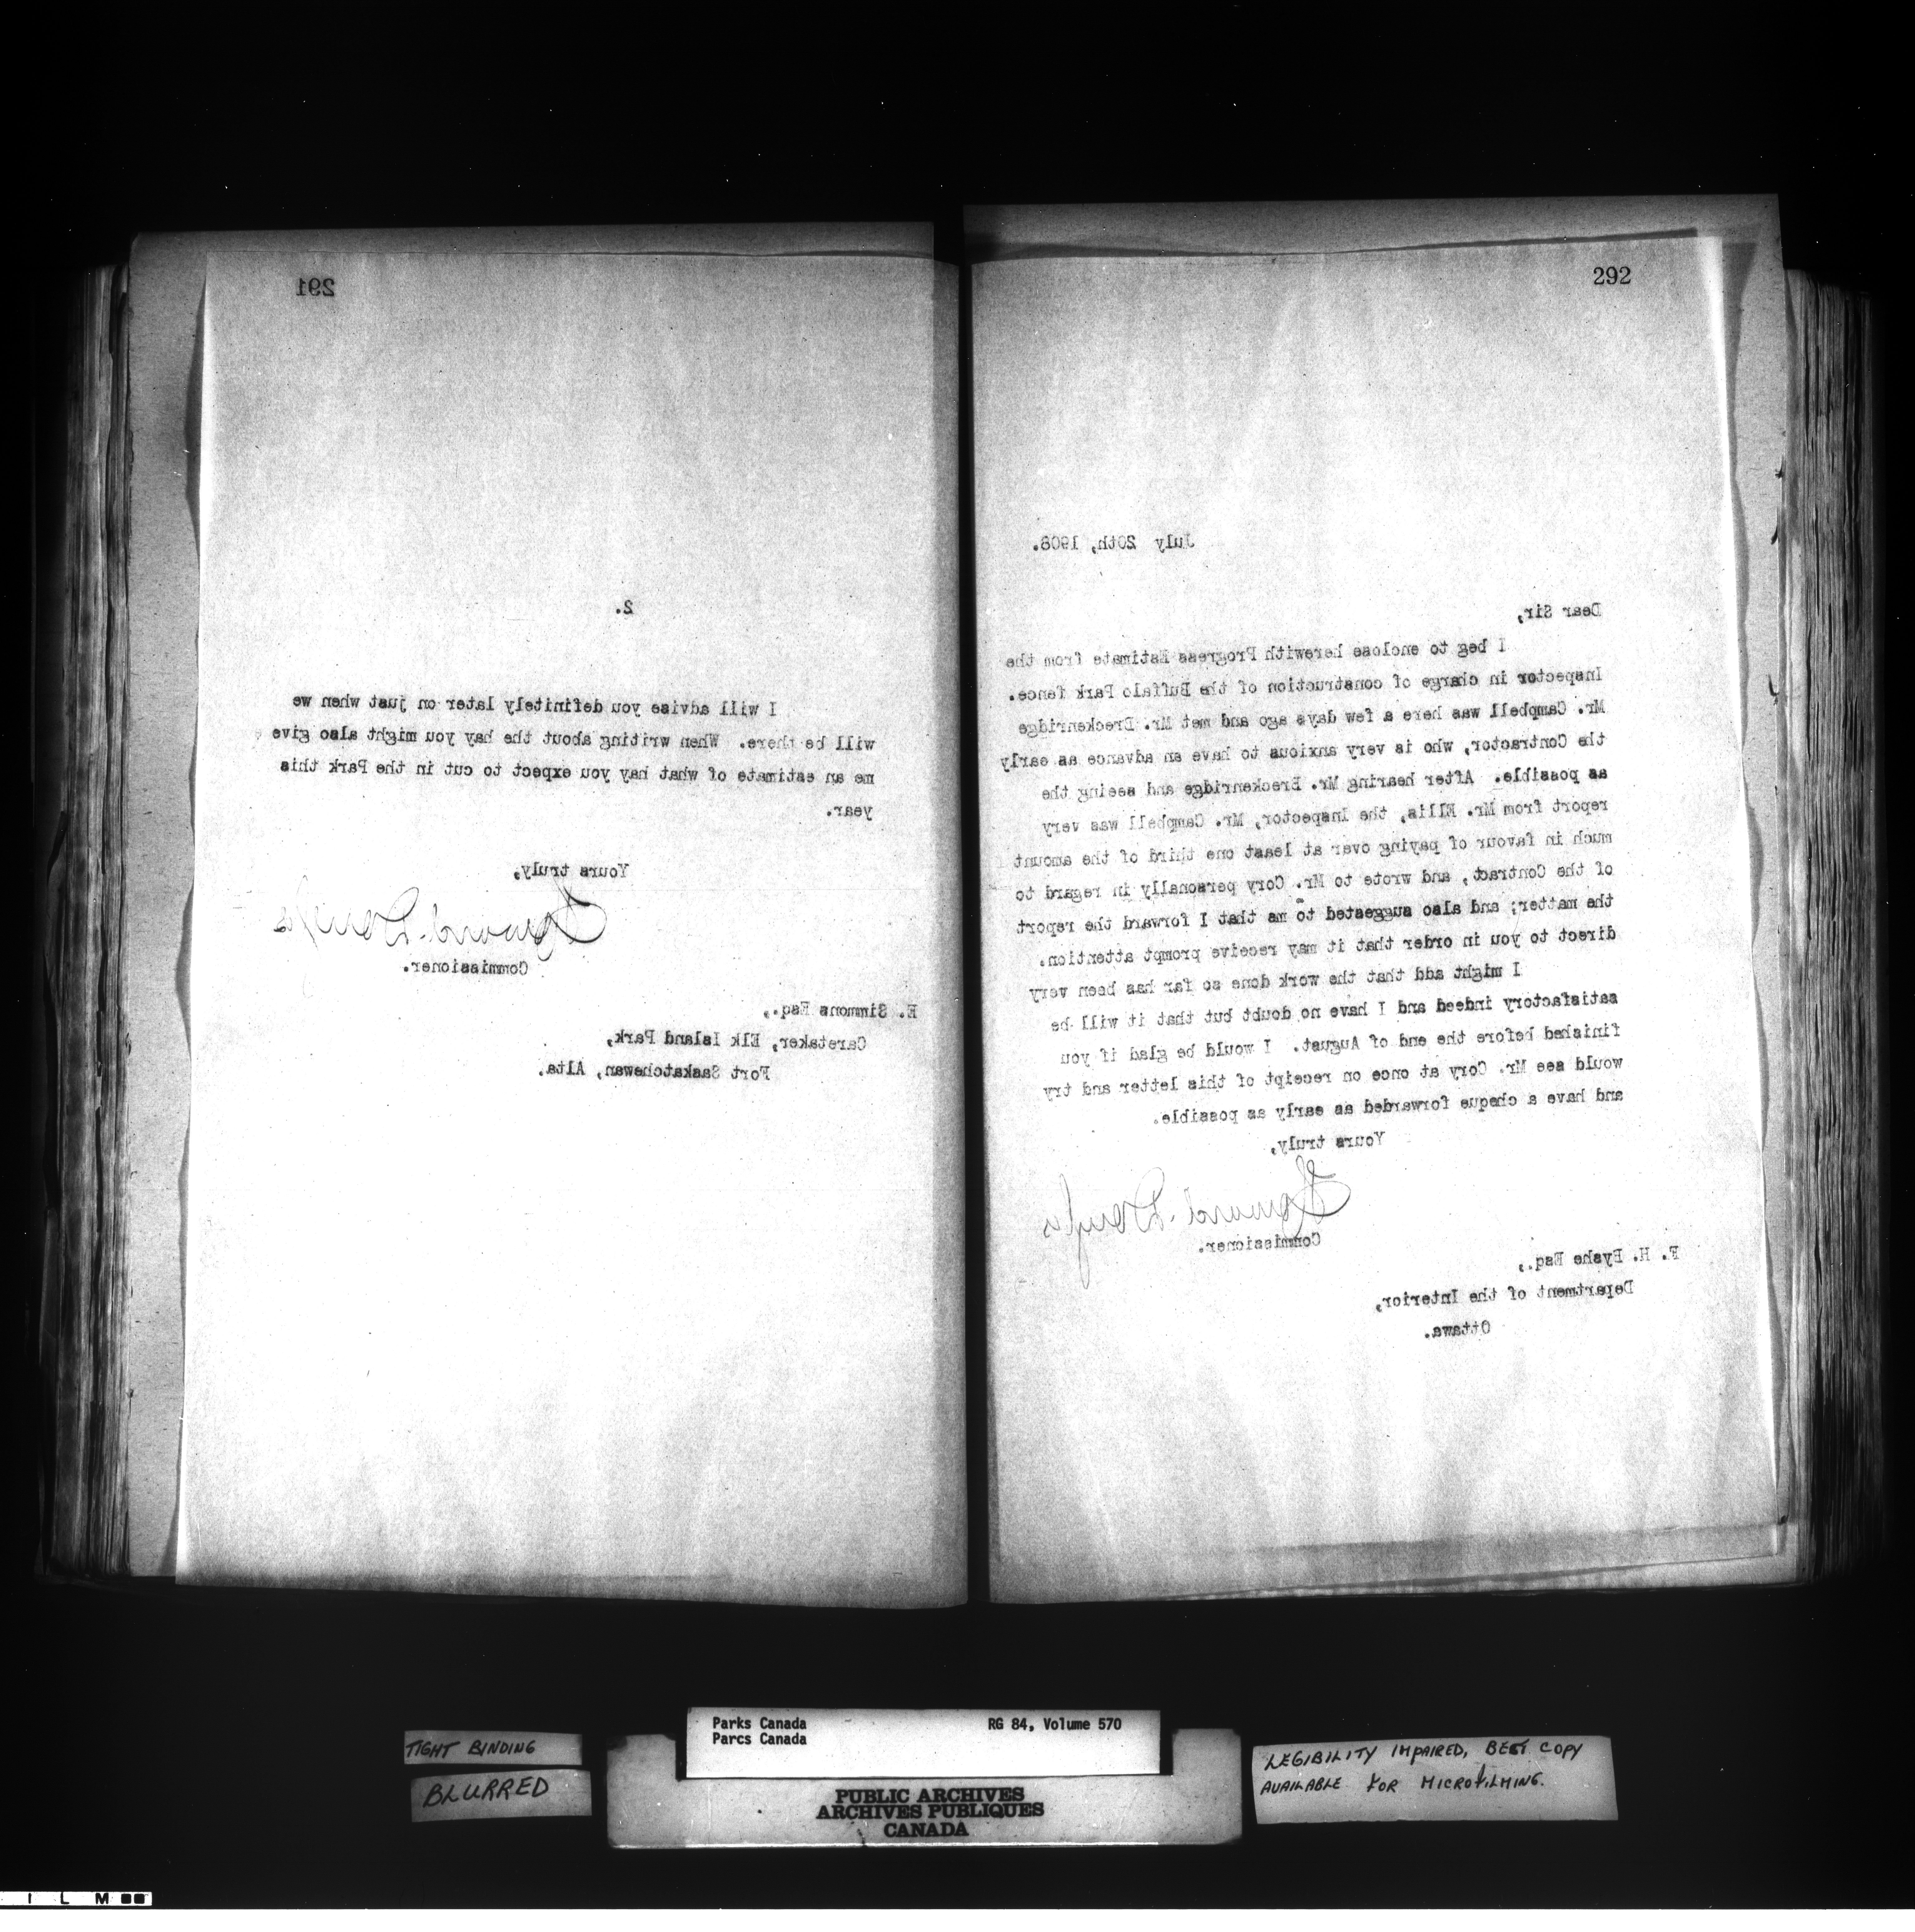 291
2.
I will advise you definitely later on just when we
will be there. When writing about the hay you might also give
me an estimate of what hay you expect to cut in the Park this
year.
Yours truly,
Commissioner.
E. Simmons Esq.,
Caretaker, Elk Island Park,
Fort Saskatchewan, Alta.
292
July 20th, 1908.
Dear Sir,
I beg to enclose herewith Progress Estimate from the
Inspector in charge of construction of the Buffalo Park fence.
Mr. Campbell was here a few days ago and met Mr. Breckenridge
the Contractor, who is very anxious to have an advance as early
as possible. After hearing Mr. Breckenridge and seeing the
report from Mr. Ellis, the Inspector, Mr. Campbell was very
much in favour of paying over at least one third of the amount
of the Contract, and wrote to Mr. Cory personally in regard to
the matter; and also suggested to me that I forward the report
direct to you in order that it may receive prompt attention.
I might add that the work done so far has been very
satisfactory indeed and I have no doubt but that it will be
finished before the end of August. I would be glad if you
would see Mr. Cory at once on receipt of this letter and try
and have a cheque forwarded as early as possible.
Yours truly,
Commissioner.
F. H. Byshe Esq.,
Department of the Interior,
Ottawa.
TIGHT BINDING
BLURRED
Parks Canada RG 84, Volume 570
Parcs Canada
PUBLIC ARCHIVES
ARCHIVES PUBLIQUES
CANADA
LEGIBILITY IMPAIRED, BEST COPY
AVAILABLE FOR MICROFILMING.
I L M